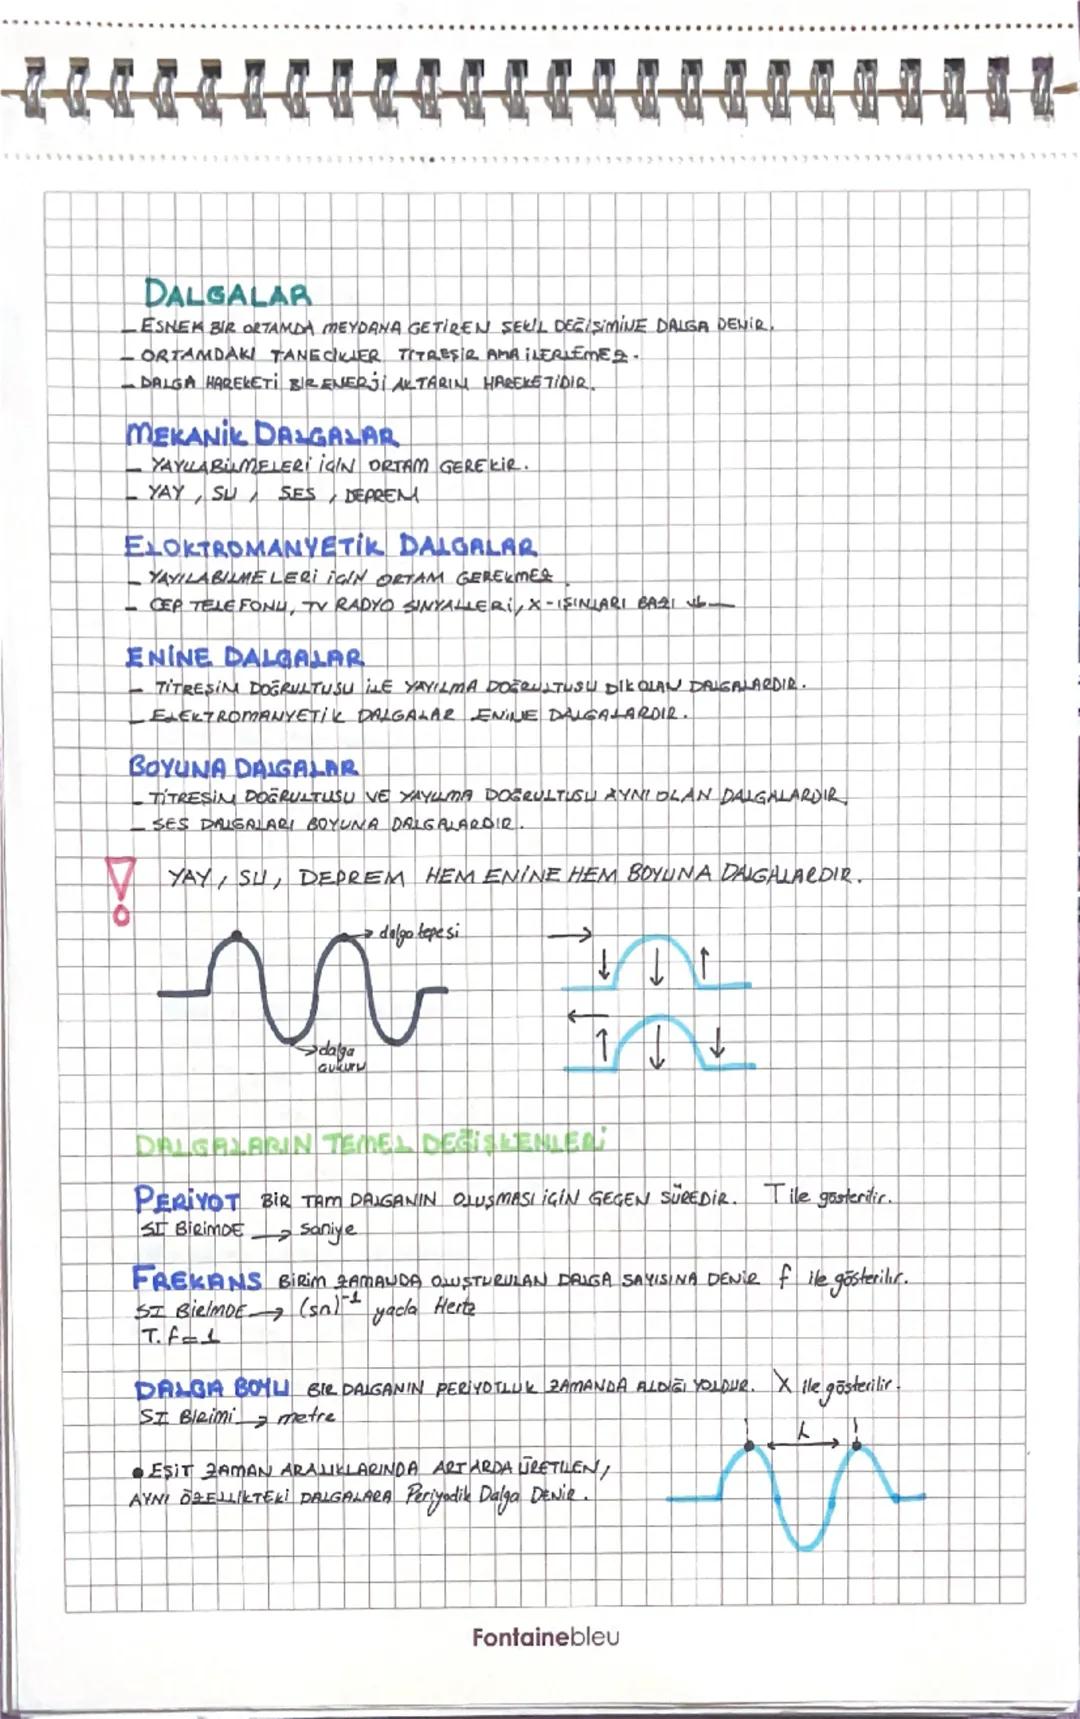 DALGALAR
- ESNEK BİR ORTAMDA MEYDANA GETİREN ŞEKİL DEĞİŞİMİNE DALGA DENİR.
- ORTAMDAKİ TANECİKLER TİTREŞİR AMA İLERLEMEZ.
- DALGA HAREKETİ BİR ENERJİ AKTARIM HAREKETİDİR.
MEKANİK DALGALAR
- YAYILABİLMELERİ İÇİN ORTAM GEREKİR.
- YAY, SU, SES, DEPREM
ELOKTROMANYETİK DALGALAR
- YAYILABİLMELERİ İÇİN ORTAM GEREKMEZ
- CEP TELEFONU, TV RADYO SİNYALLERİ, X-IŞINLARI BAZI
ENİNE DALGALAR
- TİTREŞİM DOĞRULTUSU İLE YAYILMA DOĞRULTUSU DİK OLAN DALGALARDIR.
- ELEKTROMANYETİK DALGALAR ENİNE DALGALARDIR.
BOYUNA DALGALAR
- TİTREŞİM DOĞRULTUSU VE YAYILMA DOĞRULTUSU AYNI OLAN DALGALARDIR.
- SES DALGALARI BOYUNA DALGALARDIR.
! YAY, SU, DEPREM HEM ENİNE HEM BOYUNA DALGALARDIR.
→ dalga tepesi
→ dalga
çukuru
DALGALARIN TEMEL DEĞİŞKENLERİ
PERİYOT BİR TAM DALGANIN OLUŞMASI İÇİN GEÇEN SÜREDİR. T ile gösterilir.
SI BİRİMDE → saniye
FREKANS BİRİM ZAMANDA OLUŞTURULAN DALGA SAYISINA DENİR f ile gösterilir.
SI BİRİMDE → (sn)⁻¹ yada Hertz
T.f=1
DALGA BOYU BİR DALGANIN PERİYOTLUK ZAMANDA ALDIĞI YOLDUR. λ ile gösterilir.
SI BİRİMİ → metre
λ
• EŞİT ZAMAN ARALIKLARINDA ART ARDA ÜRETİLEN,
AYNI ÖZELLİKTEKİ DALGALARA Periyodik Dalga DENİR.
Fontainebleu